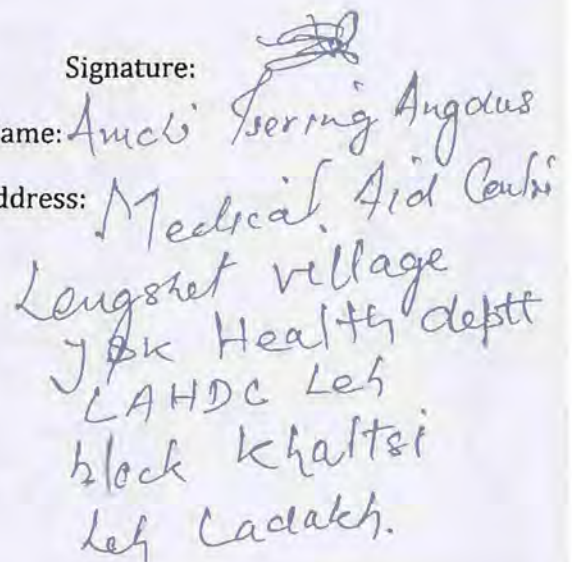 Signature:
ame: Amchi Tsering Angdus
ddress: Medical Aid Centre
village
J&K Health deptt
LAHDC Leh
block Khaltsi
Leh Ladakh.